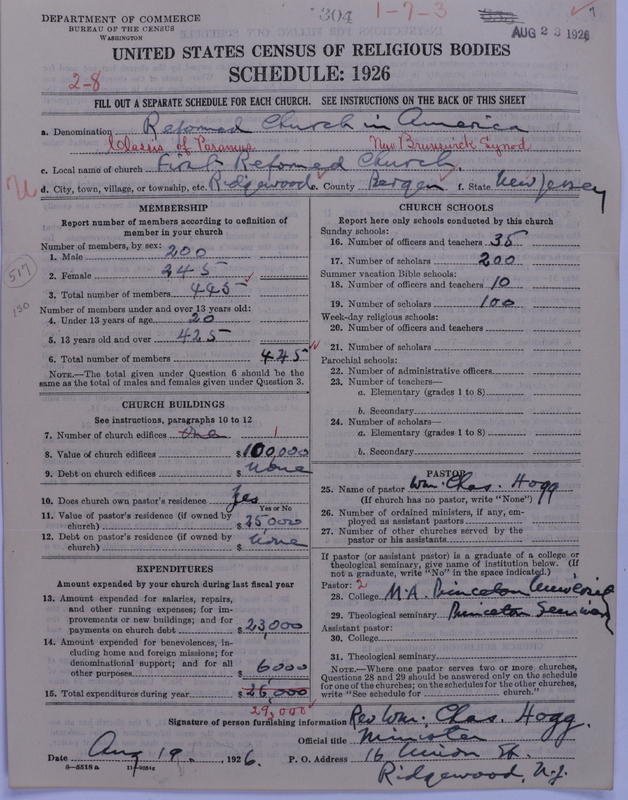 DEPARTMENT OF COMMERCE
BUREAU OF THE CENSUS
WASHINGTON
304
1-7-3
AUG 23 1926
UNITED STATES CENSUS OF RELIGIOUS BODIES
SCHEDULE: 1926
2-8
FILL OUT A SEPARATE SCHEDULE FOR EACH CHURCH. SEE INSTRUCTIONS ON THE BACK OF THIS SHEET
a. Denomination Reformed Church in America
Classis of Paramus New Brunswick Synod
c. Local name of church First Reformed Church
d. City, town, village, or township, etc. Ridgewood e. County Bergen f. State New Jersey
MEMBERSHIP
Report number of members according to definition of member in your church
Number of members, by sex:
1. Male 200
2. Female 245
3. Total number of members 445
Number of members under and over 13 years old:
4. Under 13 years of age 20
5. 13 years old and over 425
6. Total number of members 445
NOTE.—The total given under Question 6 should be the same as the total of males and females given under Question 3.
517
150
CHURCH BUILDINGS
See instructions, paragraphs 10 to 12
7. Number of church edifices one 1
8. Value of church edifices $100,000
9. Debt on church edifices $ None
10. Does church own pastor's residence Yes
Yes or No
11. Value of pastor's residence (if owned by church) $ 25000
12. Debt on pastor's residence (if owned by church) $ None
EXPENDITURES
Amount expended by your church during last fiscal year
13. Amount expended for salaries, repairs, and other running expenses; for improvements or new buildings; and for payments on church debt $ 23,000
14. Amount expended for benevolences, including home and foreign missions; for denominational support; and for all other purposes $ 6000
15. Total expenditures during year $ 26,000
29,000
CHURCH SCHOOLS
Report here only schools conducted by this church
Sunday schools:
16. Number of officers and teachers 35
17. Number of scholars 200
Summer vacation Bible schools:
18. Number of officers and teachers 10
19. Number of scholars 100
Week-day religious schools:
20. Number of officers and teachers
21. Number of scholars
Parochial schools:
22. Number of administrative officers
23. Number of teachers—
a. Elementary (grades 1 to 8)
b. Secondary
24. Number of scholars—
a. Elementary (grades 1 to 8)
b. Secondary
PASTOR
25. Name of pastor Wm. Chas. Hogg
(If church has no pastor, write "None")
26. Number of ordained ministers, if any, employed as assistant pastors
27. Number of other churches served by the pastor or his assistants
If pastor (or assistant pastor) is a graduate of a college or theological seminary, give name of institution below. (If not a graduate, write "No" in the space indicated.)
Pastor: 2
28. College M.A. Princeton University
29. Theological seminary Princeton Seminary
Assistant pastor:
30. College
31. Theological seminary
NOTE.—Where one pastor serves two or more churches, Questions 28 and 29 should be answered only on the schedule for one of the churches; on the schedules for the other churches, write "See schedule for church."
Signature of person furnishing information Rev Wm: Chas. Hogg.
Official title Minister
Date Aug 19. , 1926. P. O. Address 16 Union St.
8-5518a
Ridgewood, N.J.